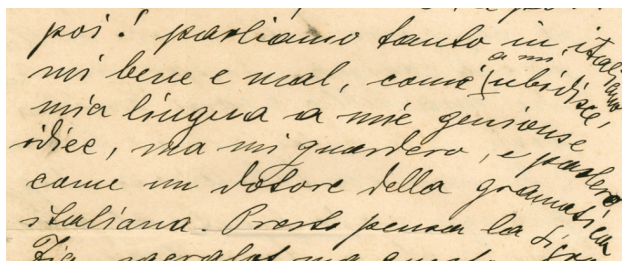 poi! parliamo tanto in italiano
mi bene e mal, come a mi ubidisce,
mia lingua a mie
idiee, ma mi guardero, e parlero
come un dotore della gramatica
italiana. Presto pensa la